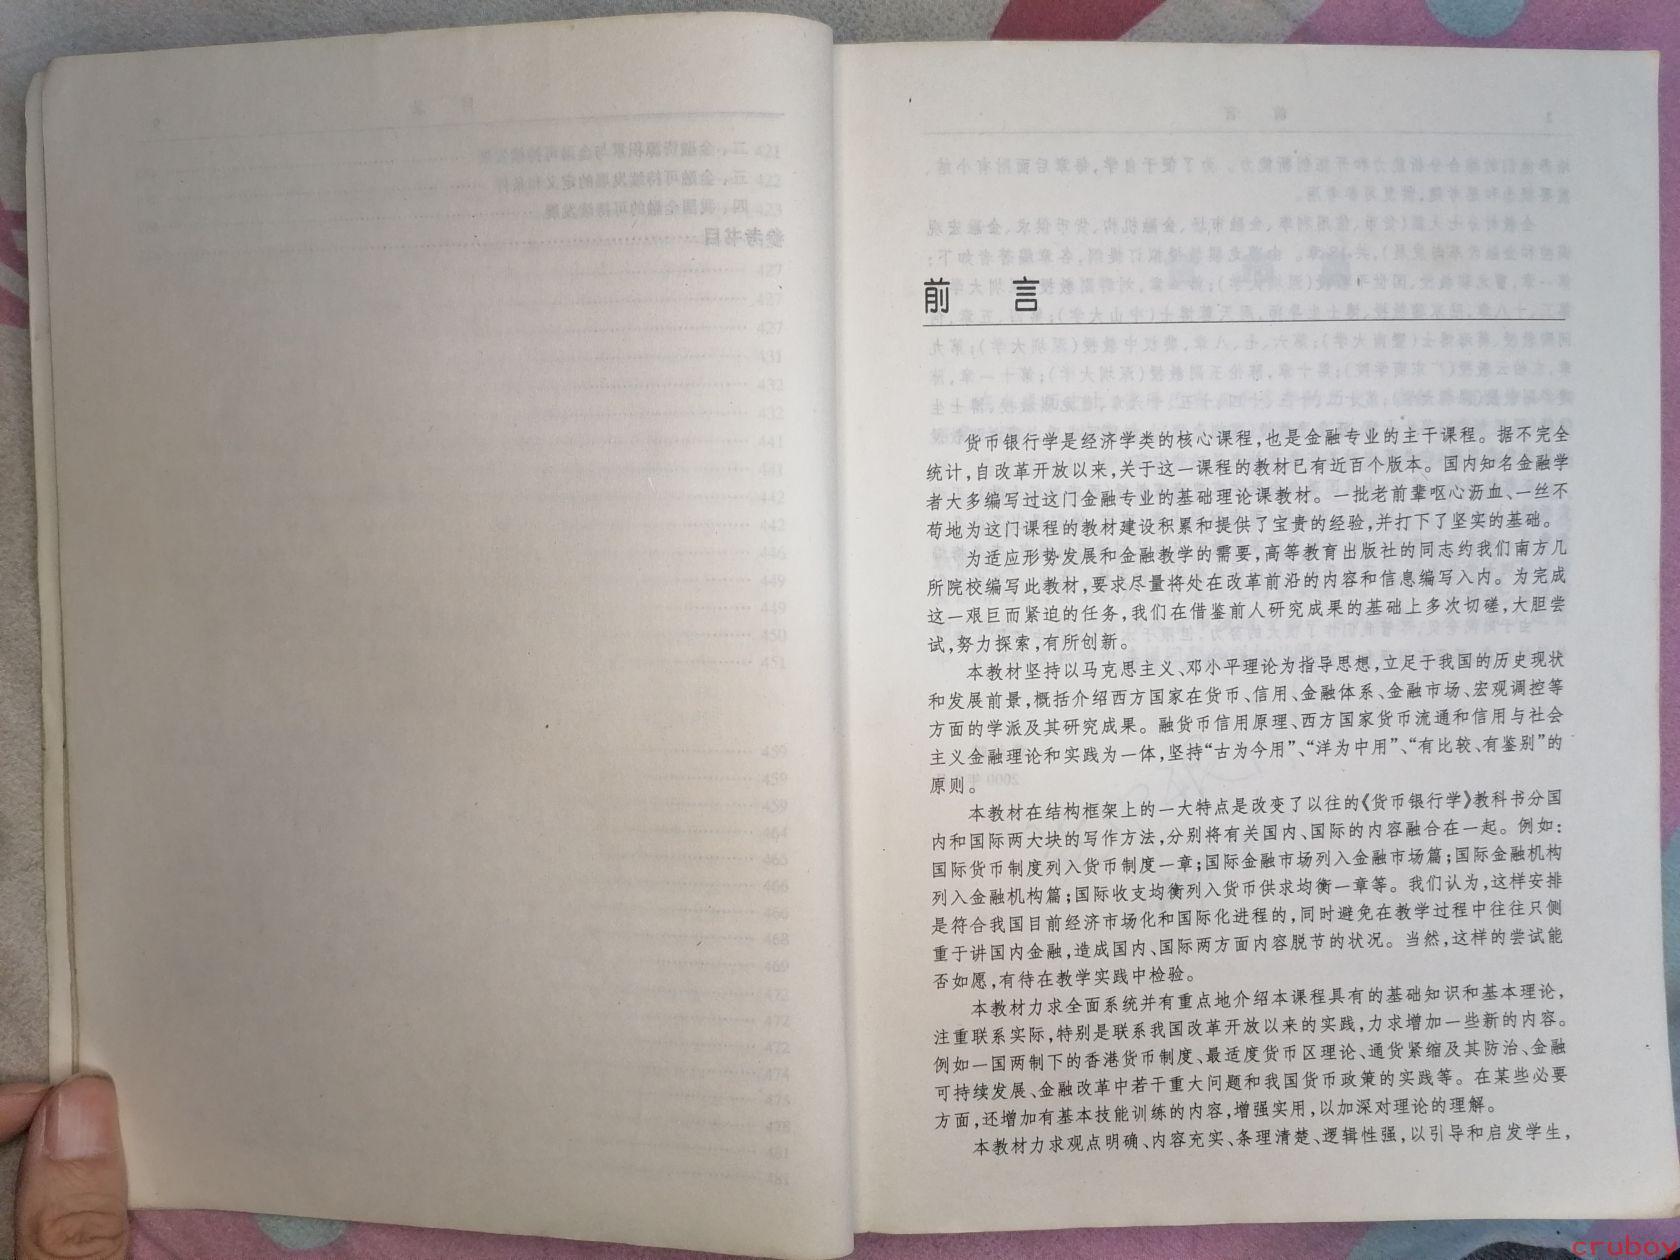 前 言
货币银行学是经济学类的核心课程,也是金融专业的主干课程。据不完全
统计,自改革开放以来,关于这一课程的教材已有近百个版本。国内知名金融学
者大多编写过这门金融专业的基础理论课教材。一批老前辈呕心沥血、一丝不
苟地为这门课程的教材建设积累和提供了宝贵的经验,并打下了坚实的基础。
为适应形势发展和金融教学的需要,高等教育出版社的同志约我们南方几
所院校编写此教材,要求尽量将处在改革前沿的内容和信息编写入内。为完成
这一艰巨而紧迫的任务,我们在借鉴前人研究成果的基础上多次切磋,大胆尝
试,努力探索,有所创新。
本教材坚持以马克思主义、邓小平理论为指导思想,立足于我国的历史现状
和发展前景,概括介绍西方国家在货币、信用、金融体系、金融市场、宏观调控等
方面的学派及其研究成果。融货币信用原理、西方国家货币流通和信用与社会
主义金融理论和实践为一体,坚持“古为今用”、“洋为中用”、“有比较、有鉴别”的
原则。
本教材在结构框架上的一大特点是改变了以往的《货币银行学》教科书分国
内和国际两大块的写作方法,分别将有关国内、国际的内容融合在一起。例如:
国际货币制度列入货币制度一章;国际金融市场列入金融市场篇;国际金融机构
列入金融机构篇;国际收支均衡列入货币供求均衡一章等。我们认为,这样安排
是符合我国目前经济市场化和国际化进程的,同时避免在教学过程中往往只侧
重于讲国内金融,造成国内、国际两方面内容脱节的状况。当然,这样的尝试能
否如愿,有待在教学实践中检验。
本教材力求全面系统并有重点地介绍本课程具有的基础知识和基本理论,
注重联系实际,特别是联系我国改革开放以来的实践,力求增加一些新的内容。
例如一国两制下的香港货币制度、最适度货币区理论、通货紧缩及其防治、金融
可持续发展、金融改革中若干重大问题和我国货币政策的实践等。在某些必要
方面,还增加有基本技能训练的内容,增强实用,以加深对理论的理解。
本教材力求观点明确、内容充实、条理清楚、逻辑性强,以引导和启发学生,
cruboy